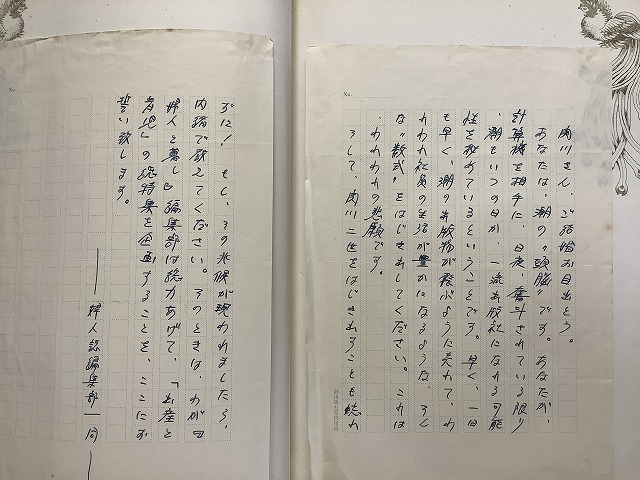 No.
内川さん、ご結婚お目出とう。
あなたは、潮の〝頭脳〟です。あなたが、
計算機を相手に、日夜、奮斗されている限り
、潮もいつの日か、一流出版社になれる可能
性を秘めているという、ことです。早く、一日
も早く、潮の出版物が飛ぶように売れて、わ
れわれ社員の生活が豊かになるような、そん
な〝数式〟をはじき出してください。これは
、われわれの悲願です。
そして、内川二世をはじき出すことも忘れ
No.
ずに！もし、その兆候が現われましたら、
内緒で教えてください。そのときは、わが「
婦人と暮し」編集部は総力あげて、「出産と
育児」の総特集を企画することを、ここにお
誓い致します。
——婦人誌編集部一同——